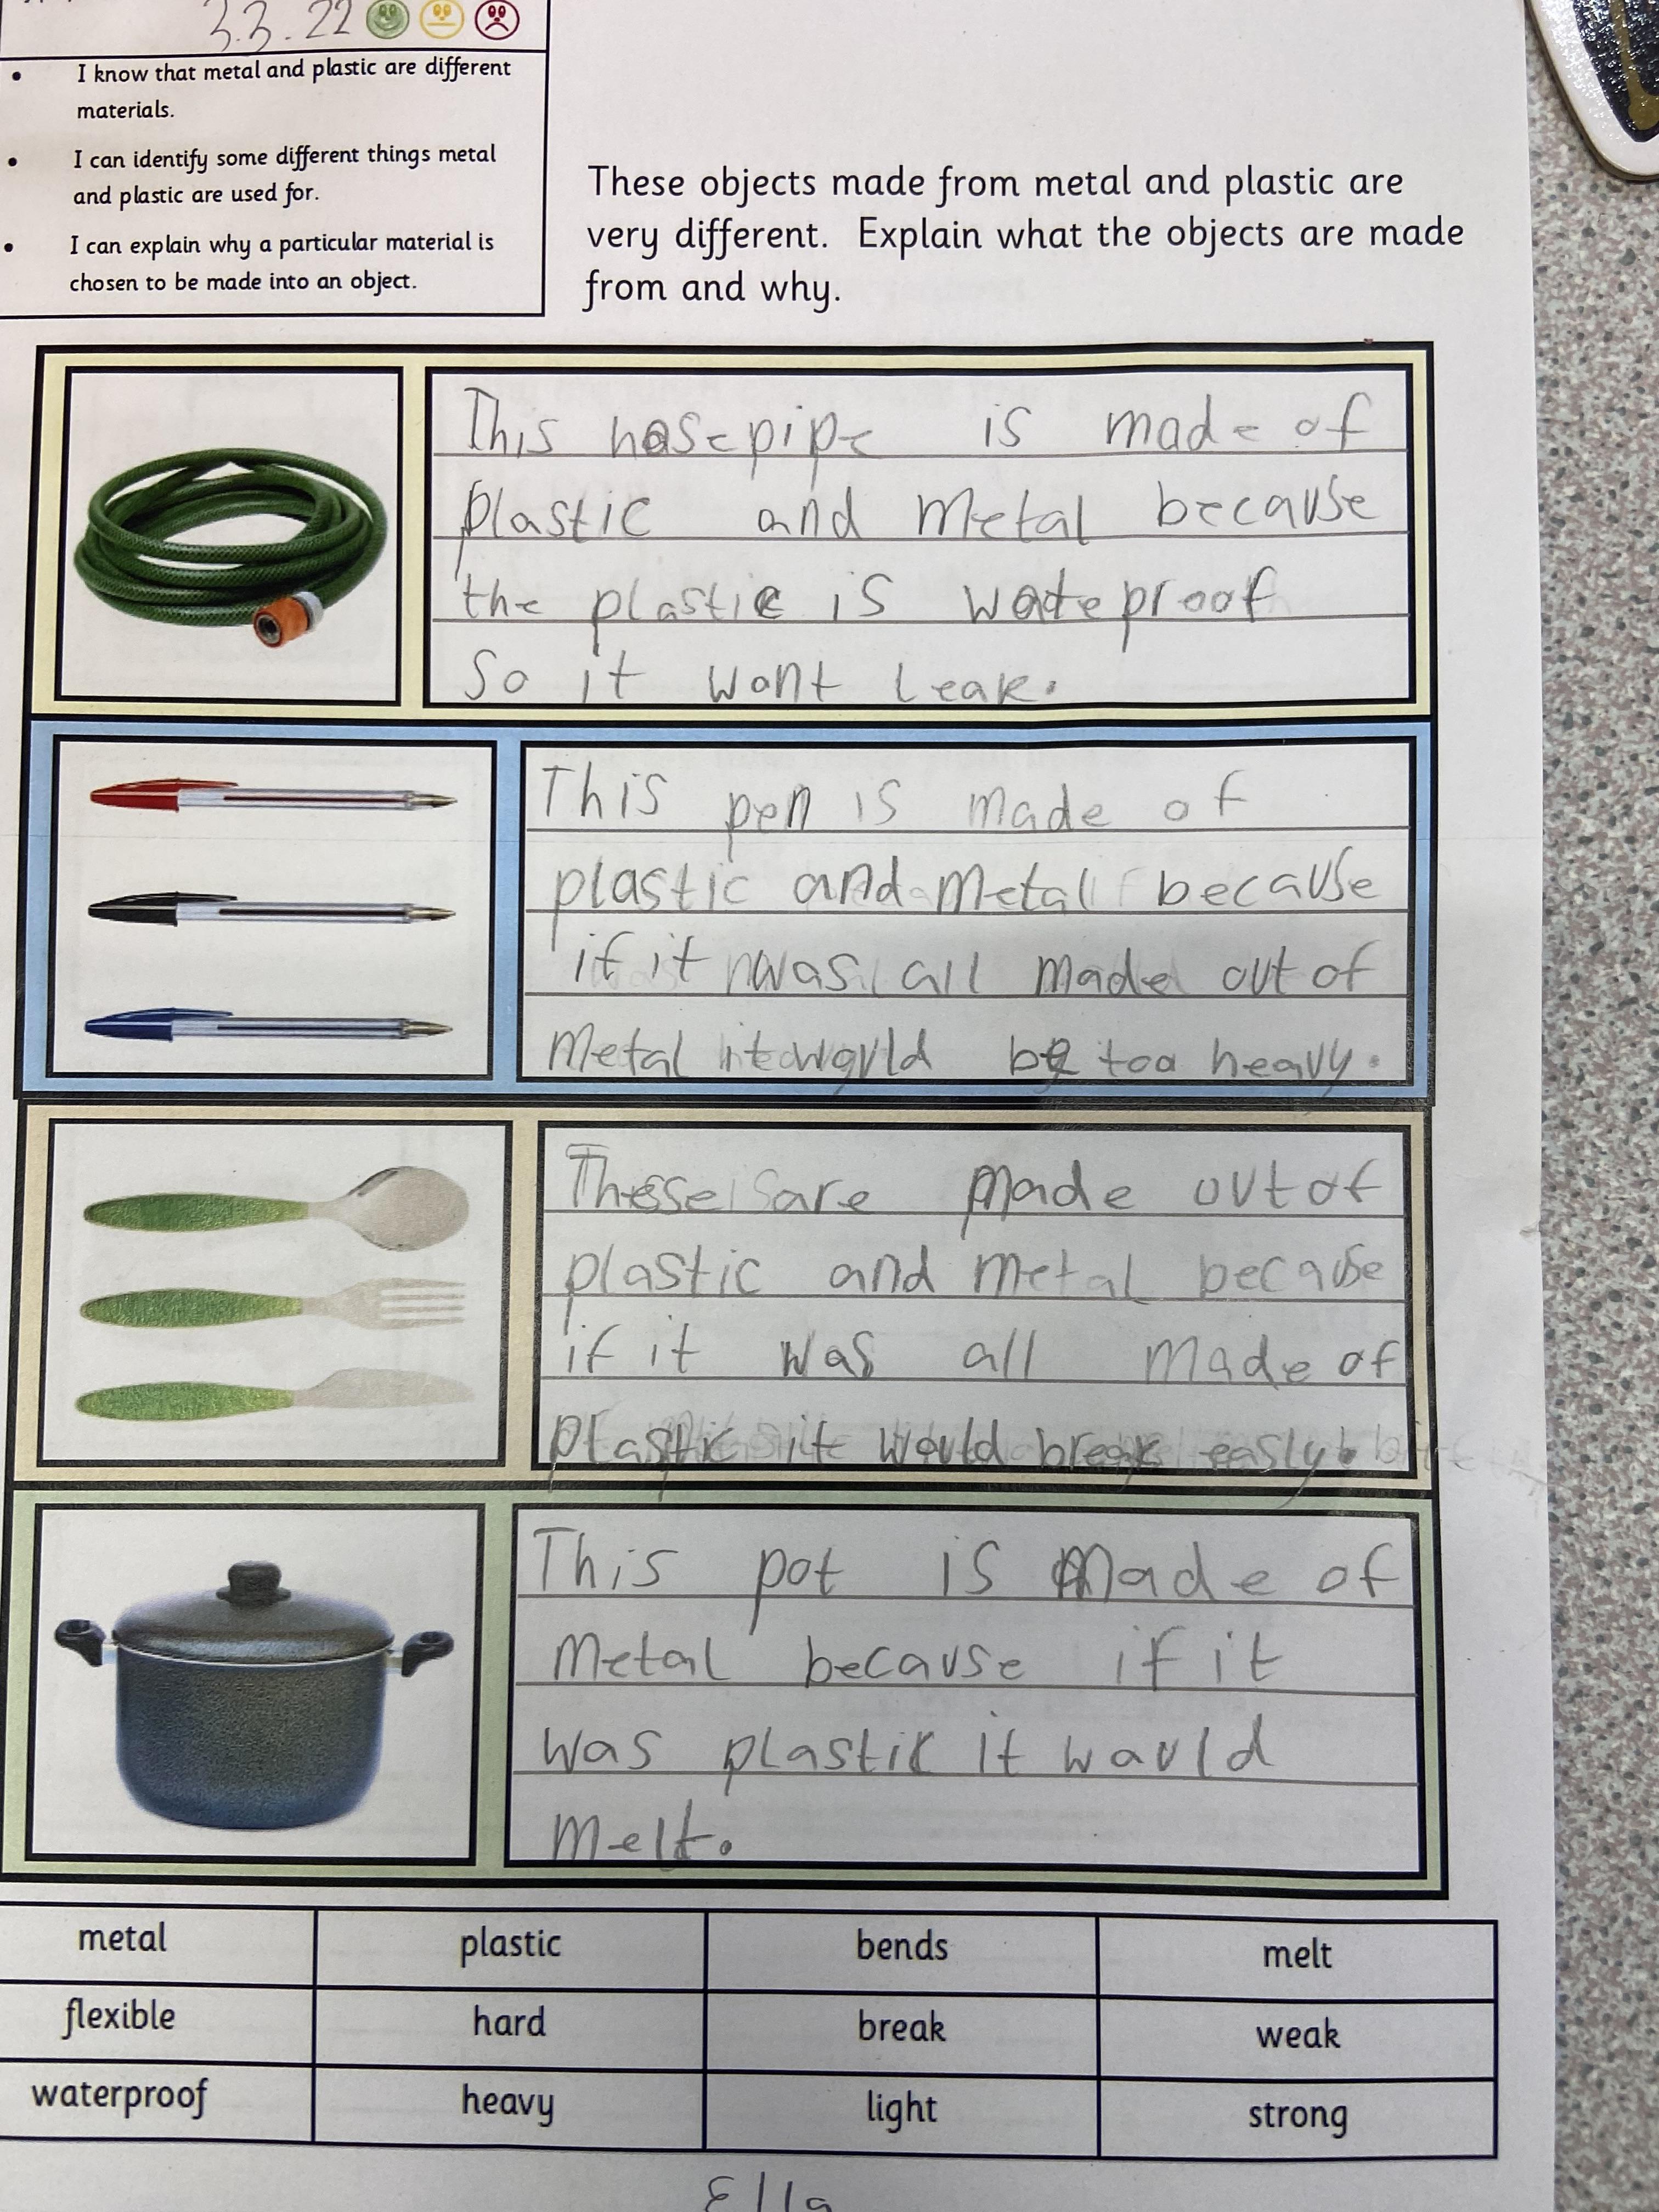 3.3.22
I know that metal and plastic are different
materials.
I can identify some different things metal
and plastic are used for.
I can explain why a particular material is
chosen to be made into an object.
These objects made from metal and plastic are
very different. Explain what the objects are made
from and why.
This hosepipe is made of
plastic and metal because
the plastic is wateproof
So it wont leak.
This pen is made of
plastic and metal because
if it was all made out of
metal it would be too heavy.
These are made out of
plastic and metal because
if it was all made of
plastic it would break easly.
This pot is made of
metal because if it
was plastic it would
melt.
metal plastic bends melt
flexible hard break weak
waterproof heavy light strong
Ella